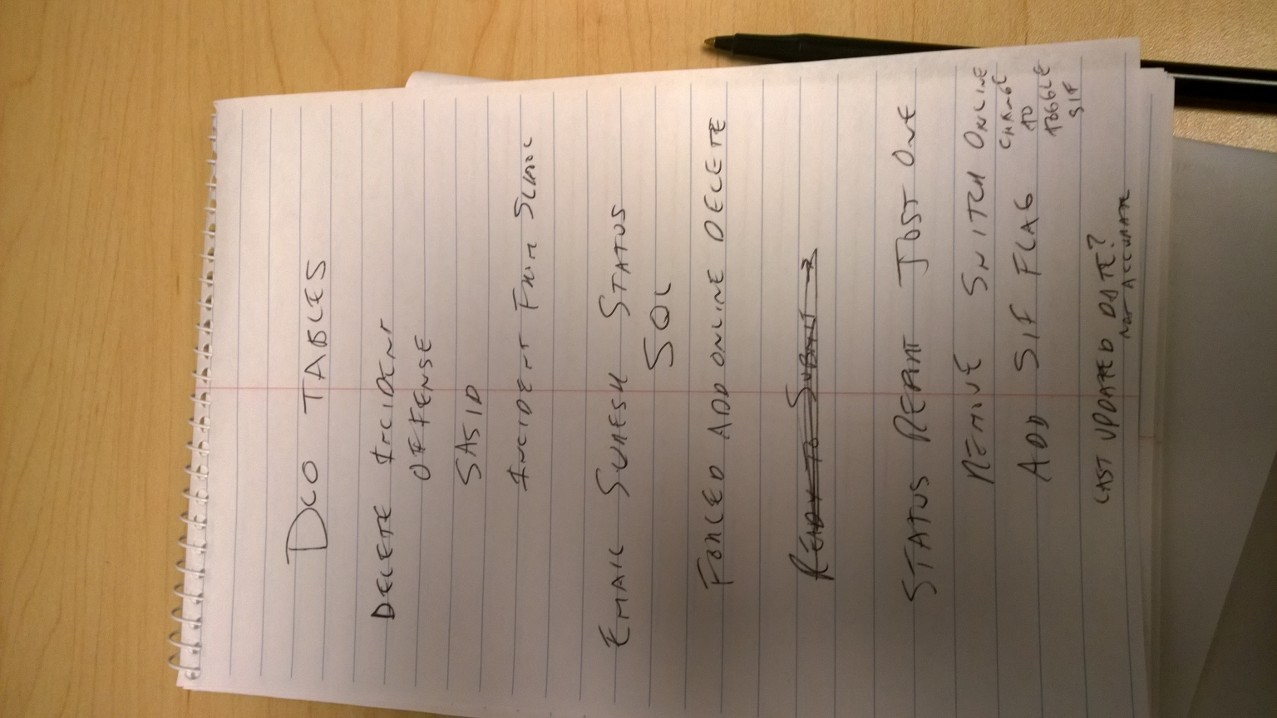 DCO TABLES
DELETE INCIDENT
OFFENSE
SASID
INCIDENT FROM SCHOOL
EMAIL SURESH STATUS
SQL
FORCED ADD ONLINE DELETE
READY TO SUBMIT →
STATUS REPORT JUST ONE
REMOVE SNITCH ONLINE
CHANGE
TO
TOGGLE
SIF
ADD SIF FLAG
LAST UPDATED DATE?
NOT ACCURATE